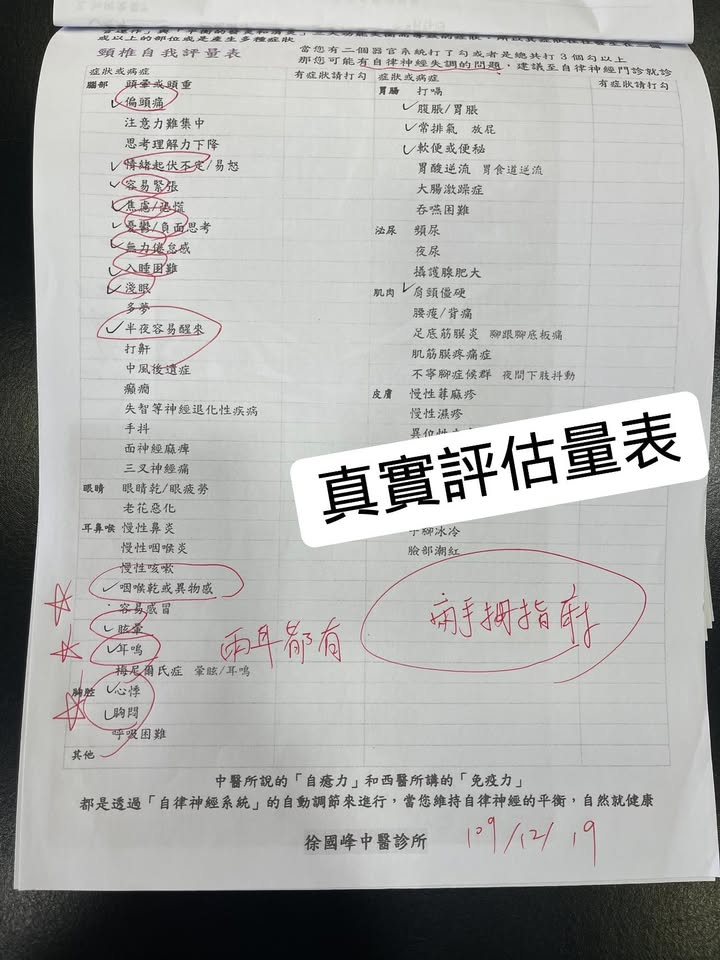 或以上的部位或是產生多種症狀
頸椎自我評量表
當您有二個器官系統打了勾或者是總共打3個勾以上
那您可能有自律神經失調的問題，建議至自律神經門診就診
症狀或病症 有症狀請打勾
腦部 頭暈或頭重
✓偏頭痛
注意力難集中
思考理解力下降
✓情緒起伏不定/易怒
✓容易緊張
✓焦慮/恐慌
✓憂鬱/負面思考
✓無力倦怠感
✓入睡困難
✓淺眠
多夢
✓半夜容易醒來
打鼾
中風後遺症
癲癇
失智等神經退化性疾病
手抖
面神經麻痺
三叉神經痛
眼睛 眼睛乾/眼疲勞
老花惡化
耳鼻喉 慢性鼻炎
慢性咽喉炎
慢性咳嗽
✓咽喉乾或異物感
容易感冒
✓眩暈
✓耳鳴
兩耳都有
梅尼爾氏症 暈眩/耳鳴
胸腔 ✓心悸
✓胸悶
呼吸困難
其他
症狀或病症 有症狀請打勾
胃腸 打嗝
✓腹脹/胃脹
✓常排氣 放屁
✓軟便或便秘
胃酸逆流 胃食道逆流
大腸激躁症
吞嚥困難
泌尿 頻尿
夜尿
攝護腺肥大
肌肉 ✓肩頸僵硬
腰痠/背痛
足底筋膜炎 腳跟腳底板痛
肌筋膜疼痛症
不寧腳症候群 夜間下肢抖動
皮膚 慢性蕁麻疹
慢性濕疹
真實評估量表
手腳冰冷
臉部潮紅
兩手拇指麻
中醫所說的「自癒力」和西醫所講的「免疫力」
都是透過「自律神經系統」的自動調節來進行，當您維持自律神經的平衡，自然就健康
徐國峰中醫診所
109/12/19